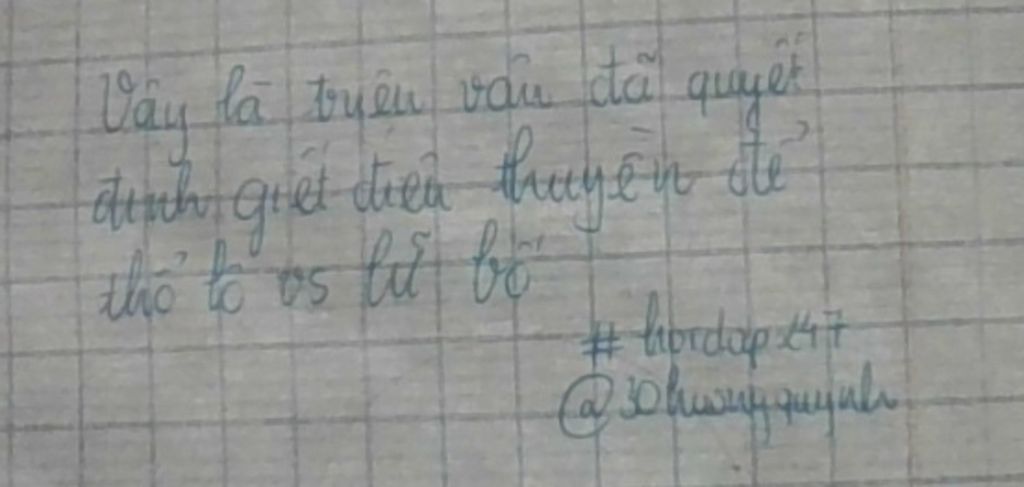 Vậy là truyện vẫn đã quyết
định giết điêu thuyền để
thổ lộ vs lữ bố
# hordap x47
@30huongquynh